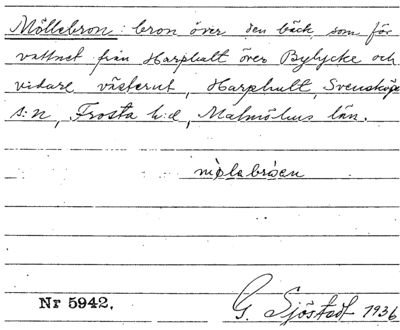 Möllebron: bron över den bäck, som för
vattnet från Harphult över Bylycke och
vidare västerut, Harphult, Svensköps
s:n, Frosta h:d, Malmöhus län.
Nr 5942.
G. Sjöstedt 1936